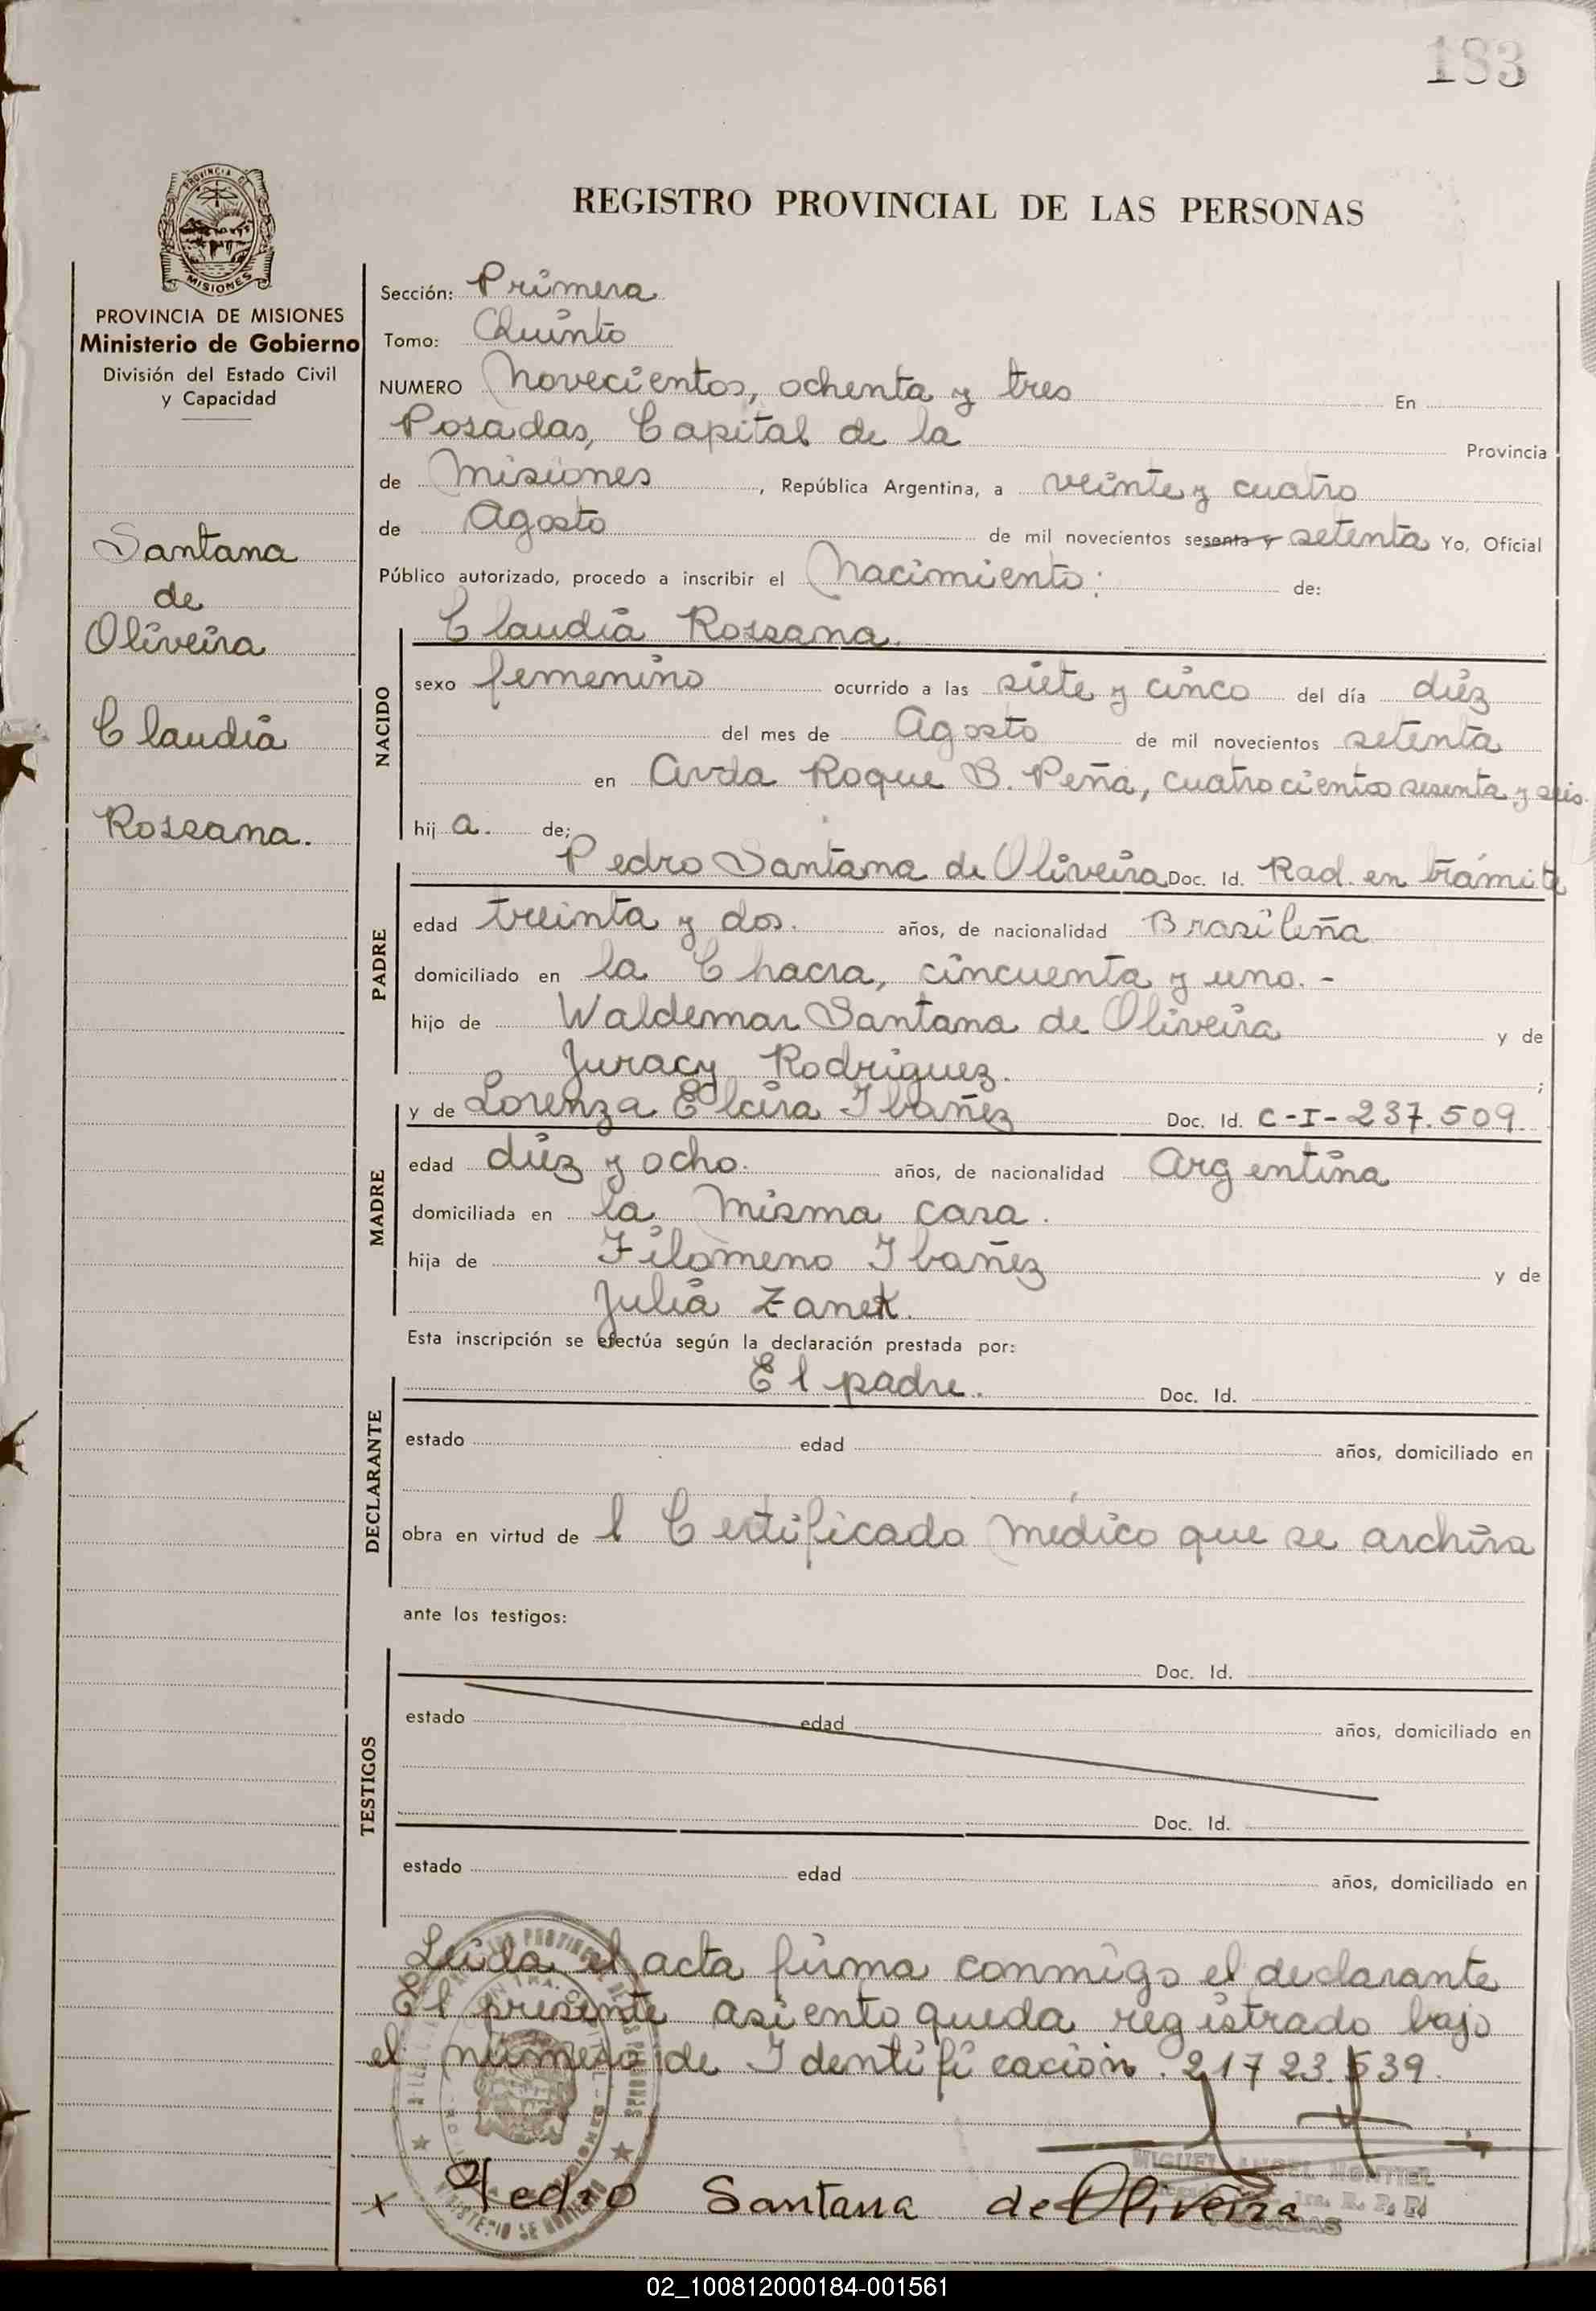 183
PROVINCIA DE
MISIONES
REGISTRO PROVINCIAL DE LAS PERSONAS
PROVINCIA DE MISIONES
Ministerio de Gobierno
División del Estado Civil
y Capacidad
Santana
de
Oliveira
Claudia
Rossana.
Sección: Primera
Tomo: Quinto
NUMERO Novecientos, ochenta y tres En
Posadas, Capital de la Provincia
de Misiones, República Argentina, a veinte y cuatro
de Agosto de mil novecientos sesenta y setenta Yo, Oficial
Público autorizado, procedo a inscribir el Nacimiento: de:
Claudia Rossana.
NACIDO
sexo femenino ocurrido a las siete y cinco del día diéz
del mes de Agosto de mil novecientos setenta
en Avda Roque S. Peña, cuatrocientos sesenta y seis.
hij a. de;
Pedro Santana de Oliveira Doc. Id. Rad. en trámite
PADRE
edad treinta y dos. años, de nacionalidad Brasileña
domiciliado en la Chacra, cincuenta y uno. -
hijo de Waldemar Santana de Oliveira y de
Juracy Rodriguez. ;
y de Lorenza Elcira Ibañez Doc. Id. C-I-237.509.
MADRE
edad diéz y ocho. años, de nacionalidad Argentina
domiciliada en la misma casa.
hija de Filomeno Ibañez y de
Julia Zanek.
Esta inscripción se efectúa según la declaración prestada por:
El padre. Doc. Id.
DECLARANTE
estado edad años, domiciliado en
obra en virtud de l Certificado médico que se archiva
ante los testigos:
Doc. Id.
TESTIGOS
estado edad años, domiciliado en
Doc. Id.
estado edad años, domiciliado en
Leida el acta firma conmigo el declarante
El presente asiento queda registrado bajo
el número de Identificación. 21723.539.
MIGUEL ANGEL MONTIEL
1ra. R. P. P.
POSADAS
x Pedro Santana de Oliveira
02_100812000184-001561